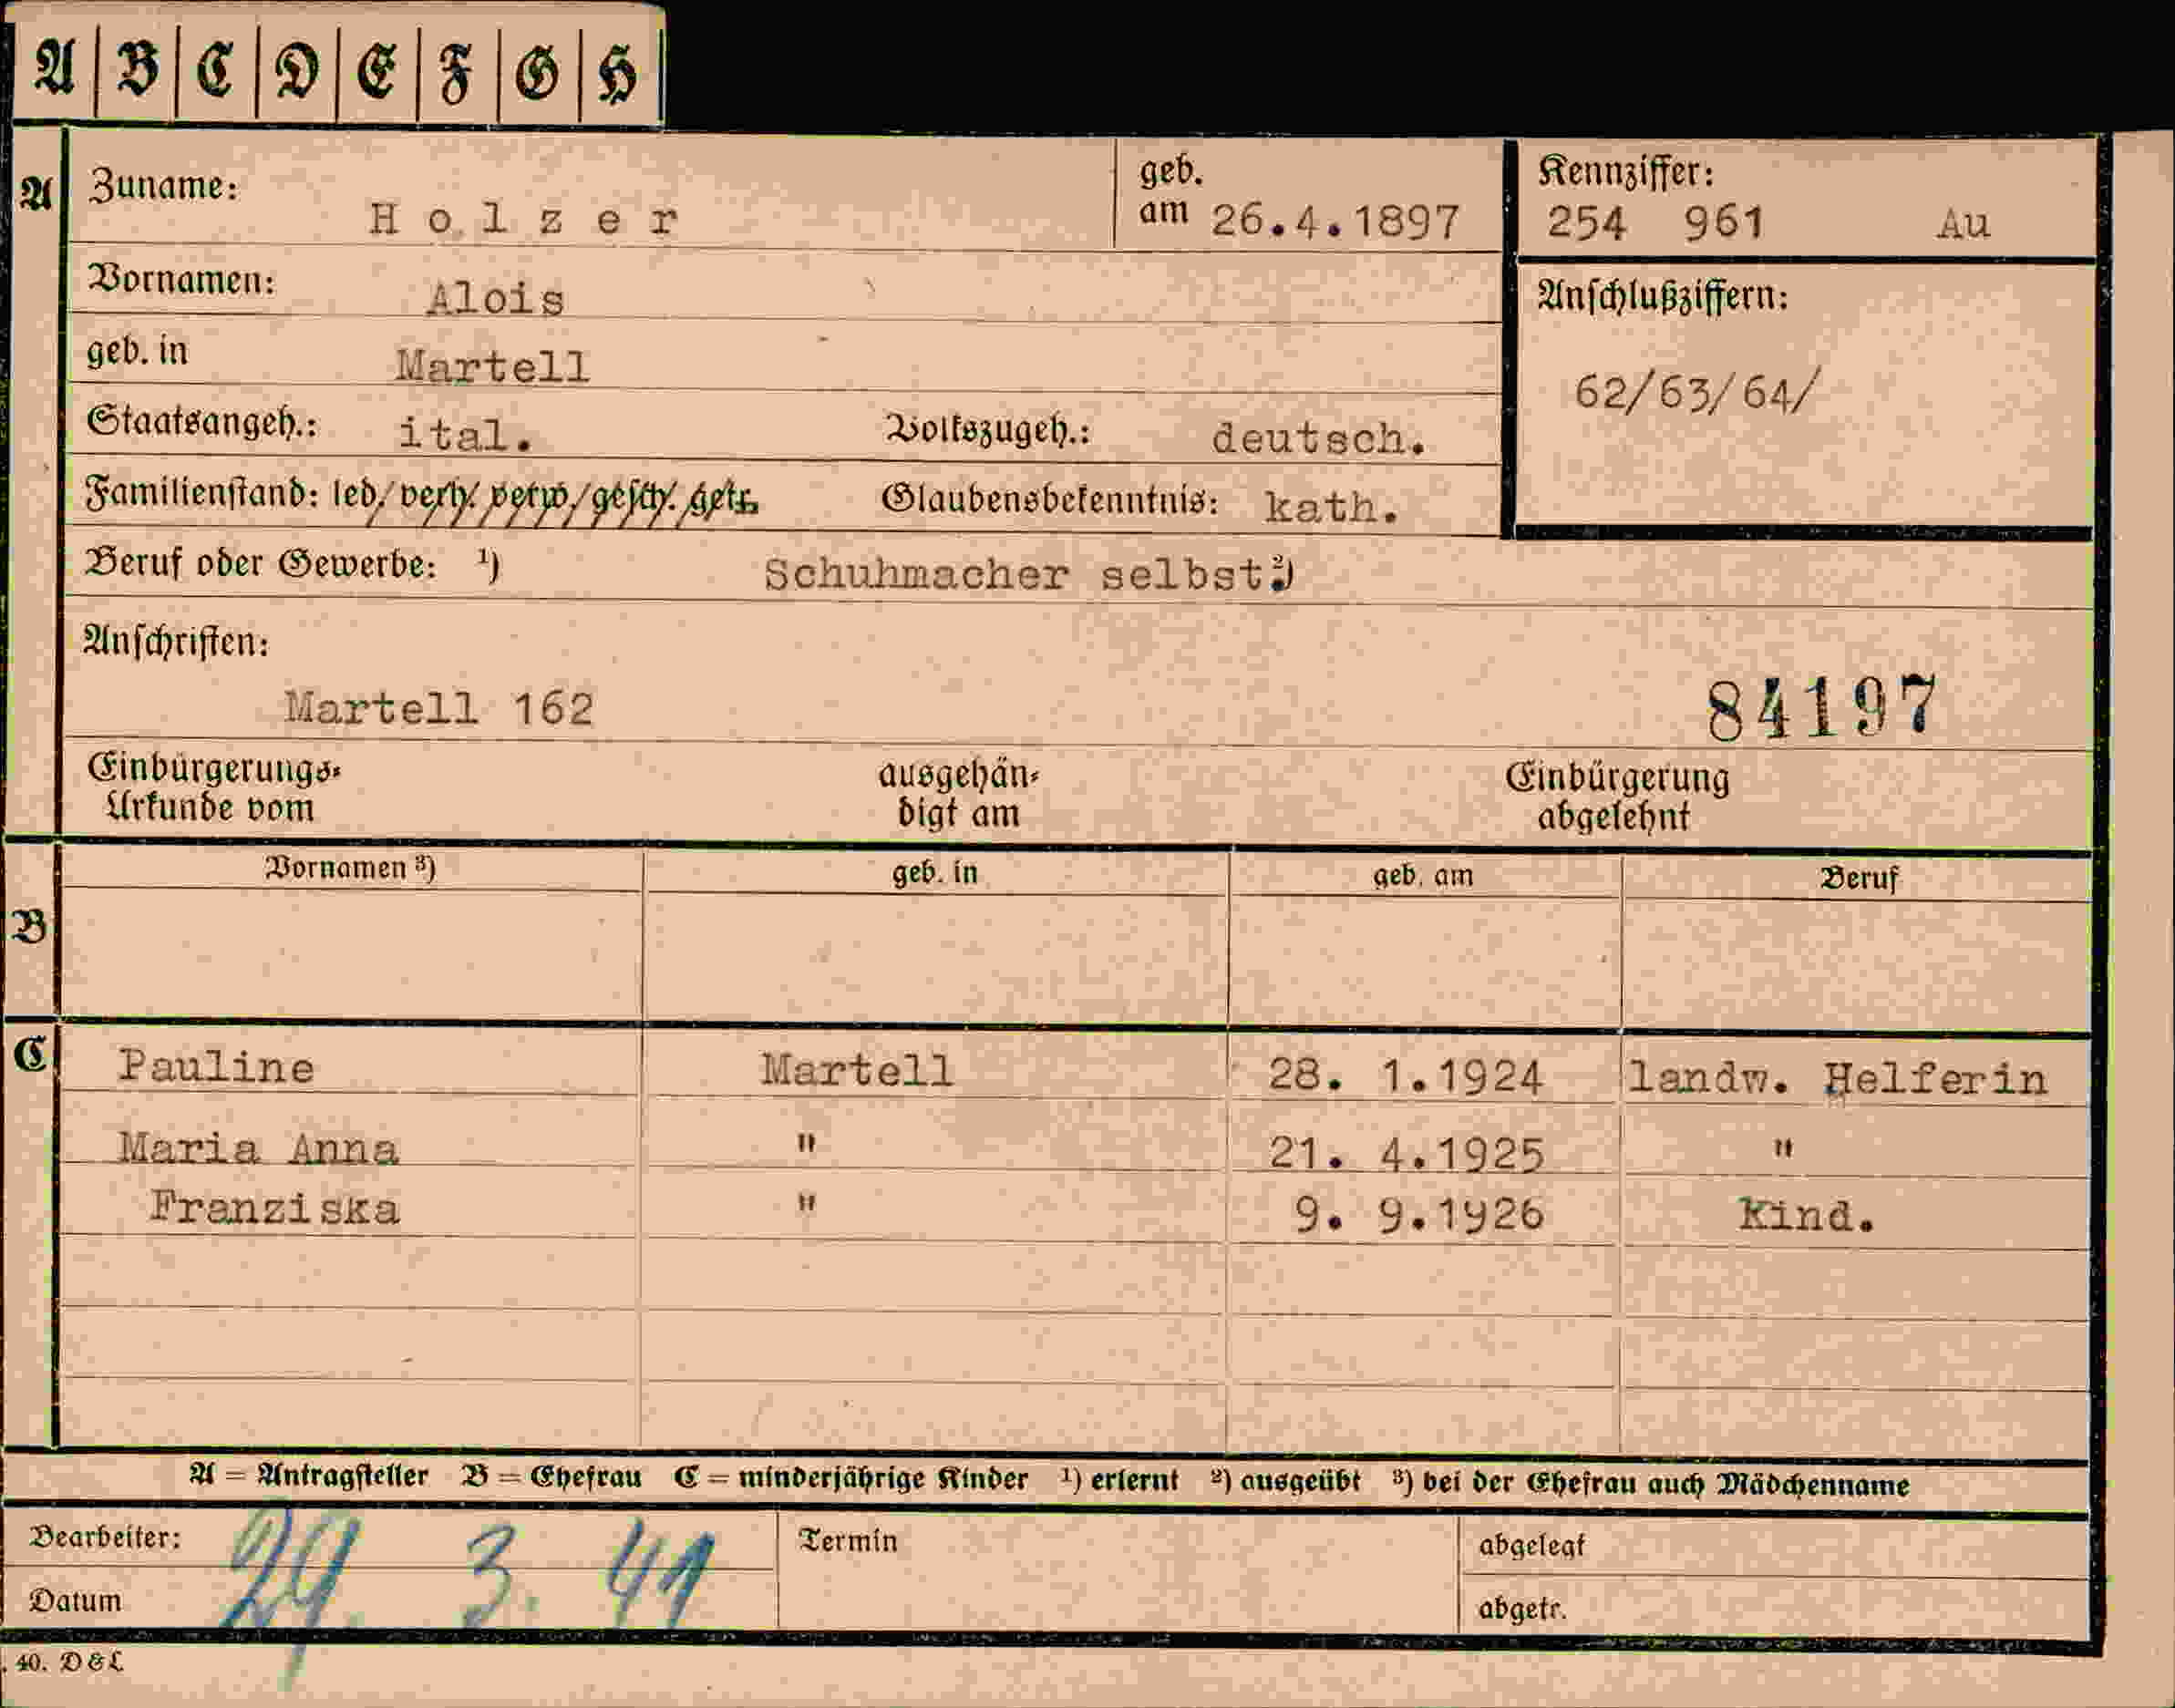 A B C D E F G H
A Zuname: Holzer geb. am 26.4.1897 Kennziffer: 254 961 Au
Vornamen: Alois
Anschlußziffern:
geb. in Martell
62/63/64/
Staatsangeh.: ital. Volkszugeh.: deutsch.
Familienstand: led/verh./verw/gesch./getr. Glaubensbekenntnis: kath.
Beruf oder Gewerbe: ¹) Schuhmacher selbst. ²)
Anschriften:
Martell 162 84197
Einbürgerungs- ausgehän- Einbürgerung
Urkunde vom digt am abgelehnt
B Vornamen ³) geb. in geb. am Beruf
C Pauline Martell 28. 1.1924 landw. Helferin
Maria Anna " 21. 4.1925 "
Franziska " 9. 9.1926 Kind.
A = Antragsteller B = Ehefrau C = minderjährige Kinder ¹) erlernt ²) ausgeübt ³) bei der Ehefrau auch Mädchenname
Bearbeiter: 29. 3. 41 Termin abgelegt
Datum abgetr.
40. D&L